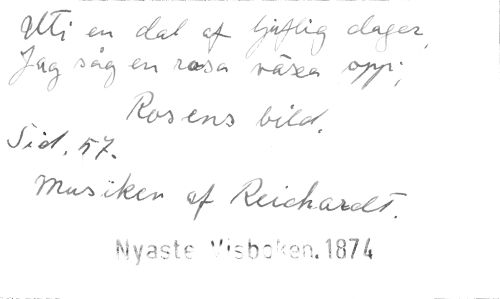 Uti en dal af ljuflig dager,
Jag såg en rosa växa opp;
Rosens bild.
Sid. 57.
Musiken af Reichardt.
Nyaste Visboken. 1874